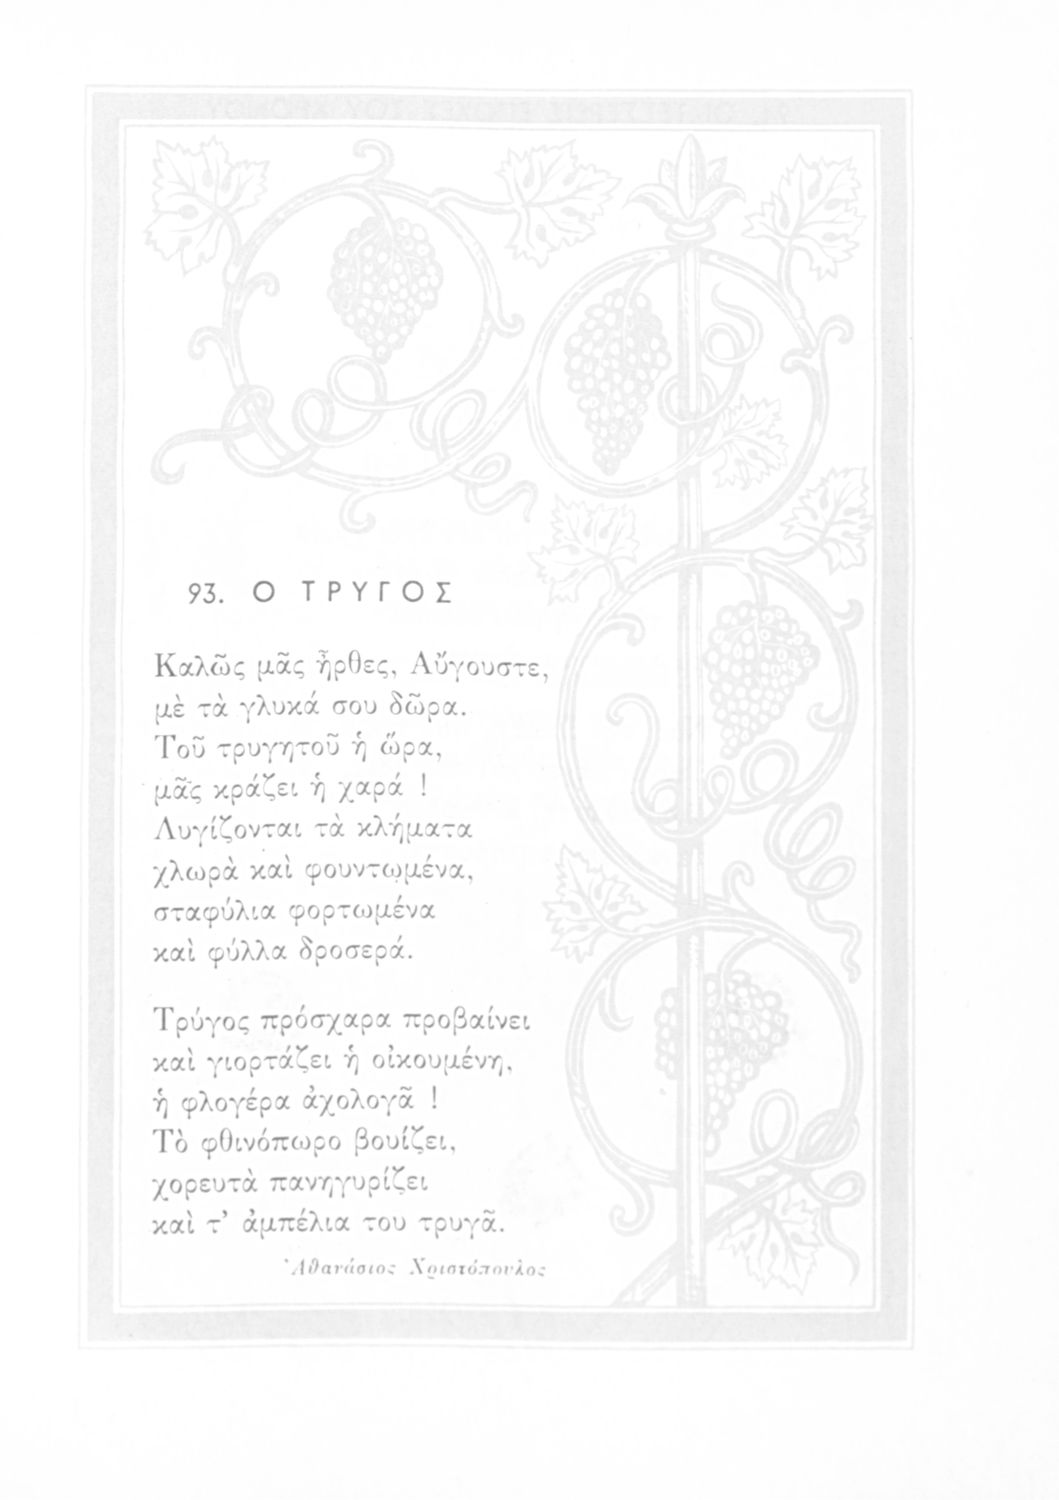 93. Ο ΤΡΥΓΟΣ
Καλῶς μᾶς ἦρθες, Αὔγουστε,
μὲ τὰ γλυκά σου δῶρα.
Τοῦ τρυγητοῦ ἡ ὥρα,
μᾶς κράζει ἡ χαρά !
Λυγίζονται τὰ κλήματα
χλωρὰ καὶ φουντωμένα,
σταφύλια φορτωμένα
καὶ φύλλα δροσερά.
Τρύγος πρόσχαρα προβαίνει
καὶ γιορτάζει ἡ οἰκουμένη,
ἡ φλογέρα ἀχολογᾶ !
Τὸ φθινόπωρο βουίζει,
χορευτὰ πανηγυρίζει
καὶ τ' ἀμπέλια του τρυγᾶ.
Ἀθανάσιος Χριστόπουλος